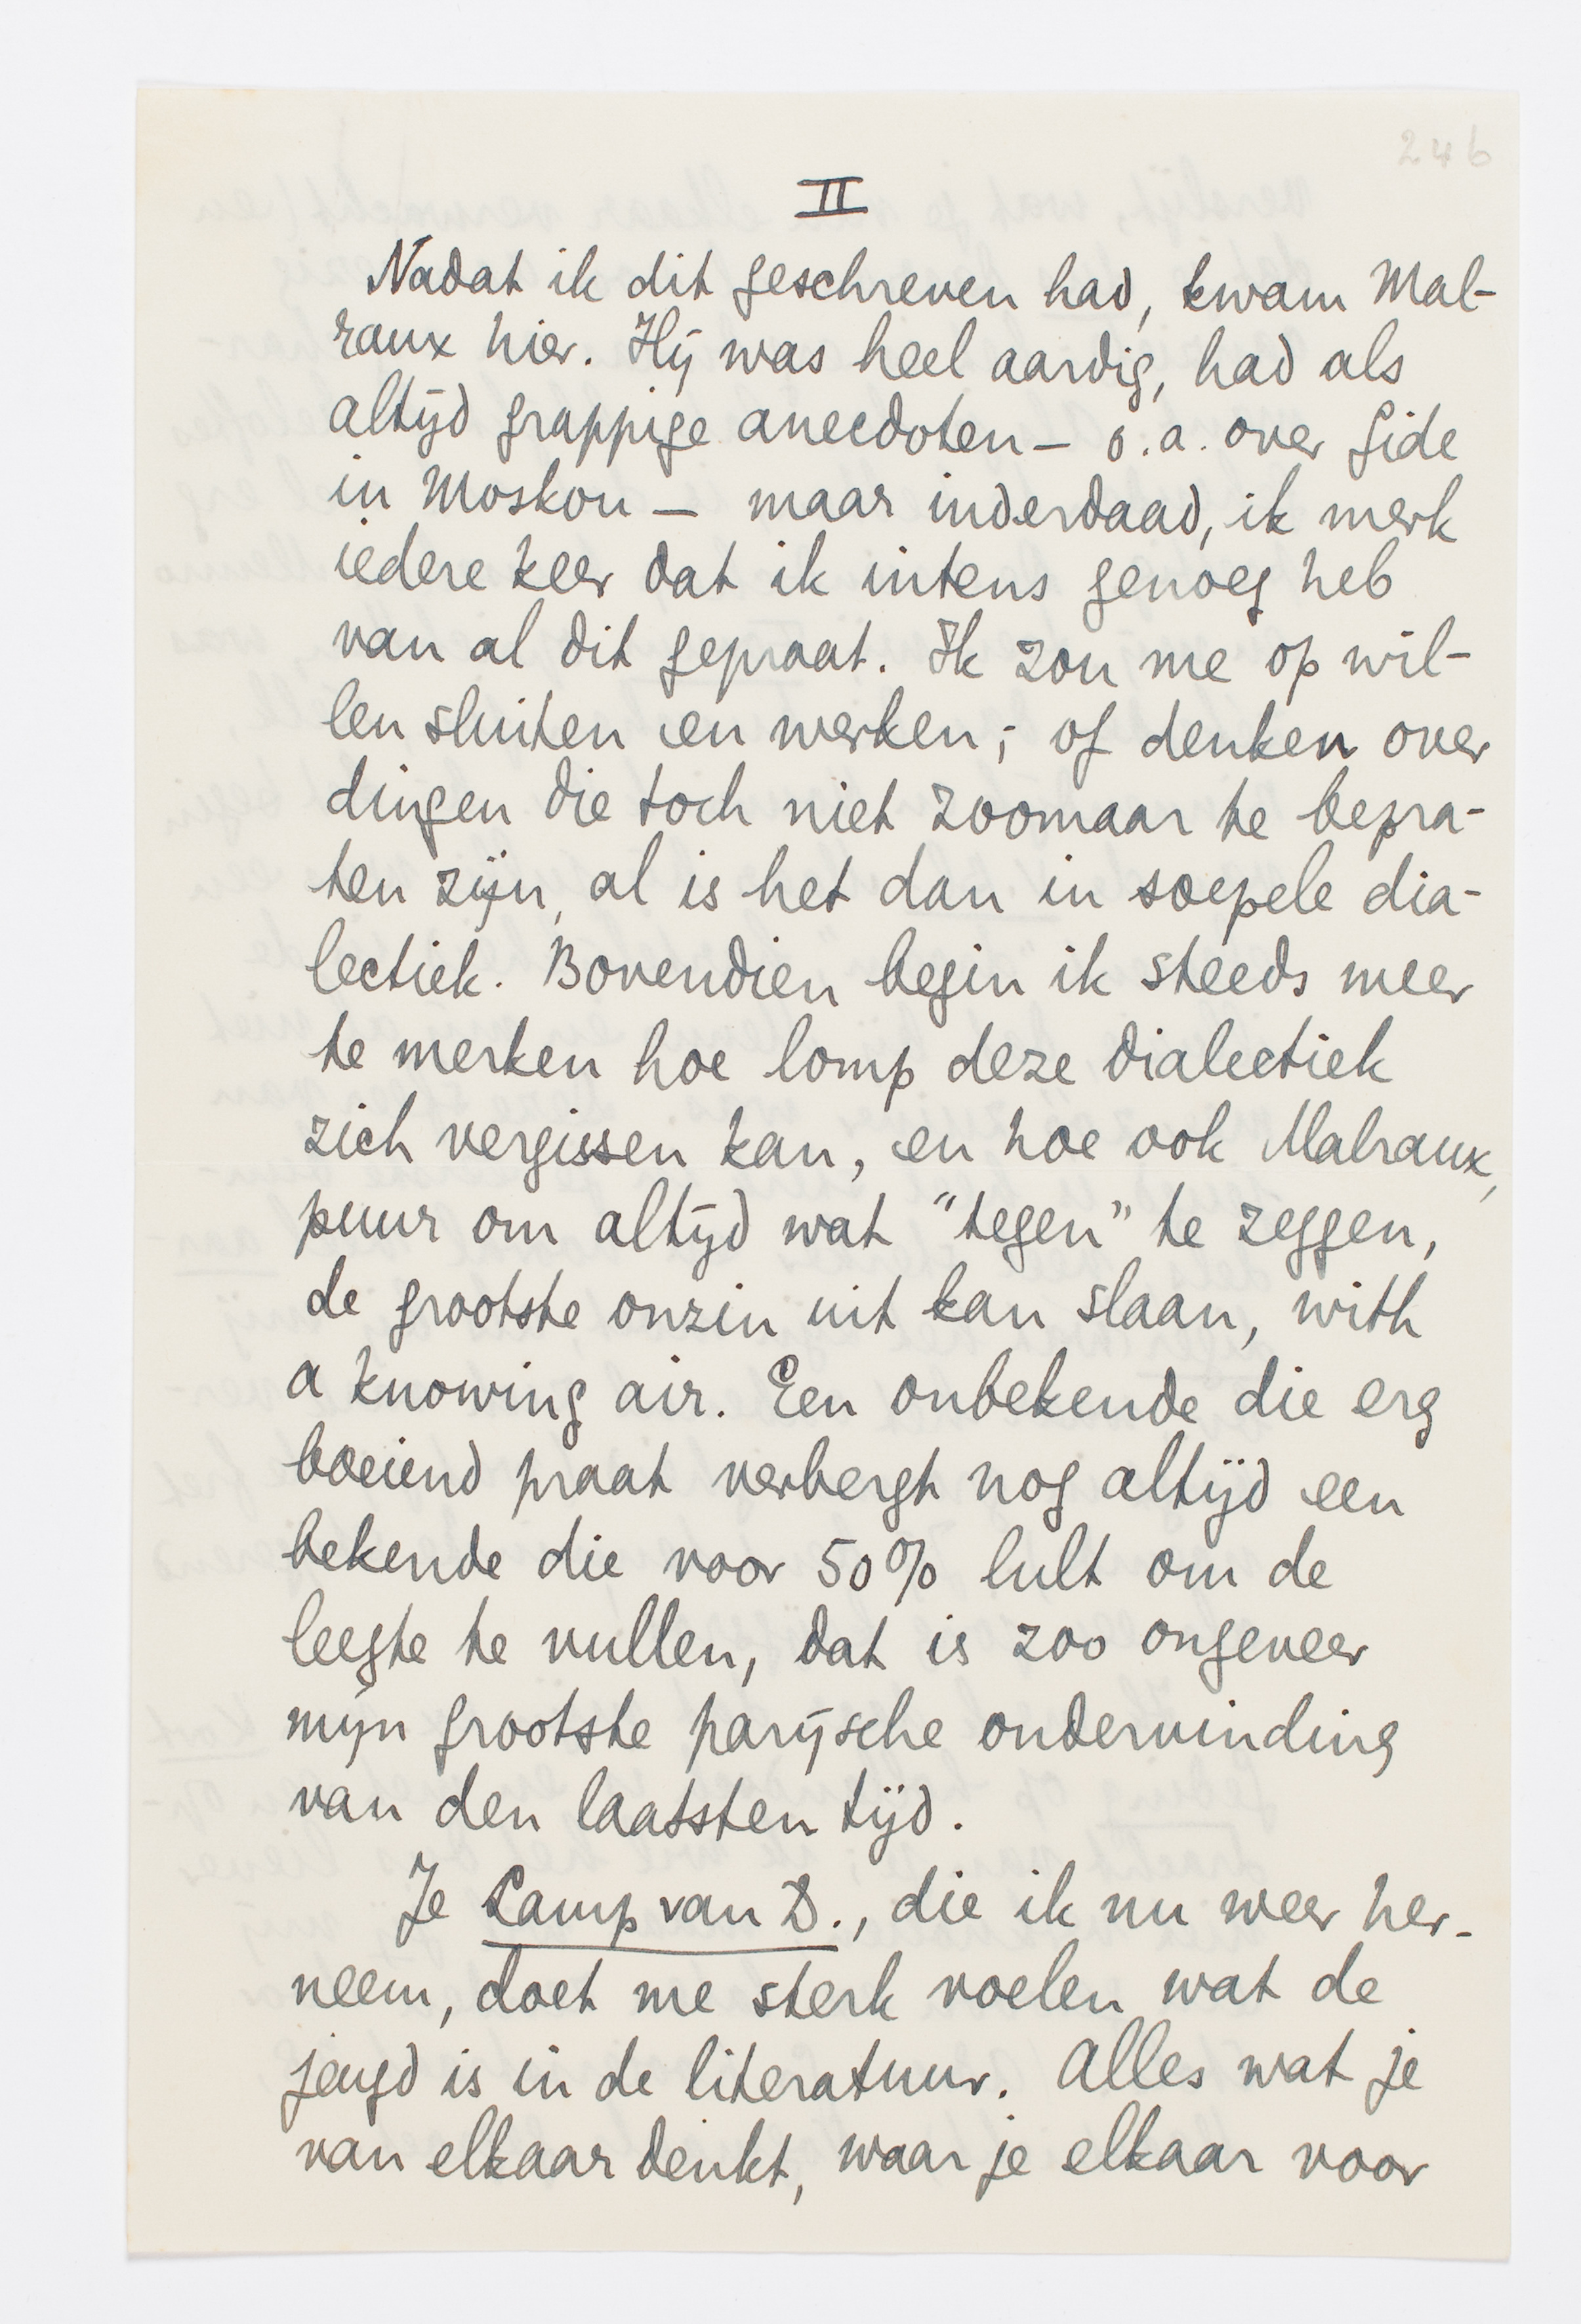 246
II
Nadat ik dit geschreven had, kwam Mal-
raux hier. Hij was heel aardig, had als
altijd grappige anecdoten – o.a. over Gide
in Moskou – maar inderdaad, ik merk
iedere keer dat ik intens genoeg heb
van al dit gepraat. Ik zou me op wil-
len sluiten en werken; of denken over
dingen die toch niet zoomaar te bepra-
ten zijn, al is het dan in soepele dia-
lectiek. Bovendien begin ik steeds meer
te merken hoe lomp deze dialectiek
zich vergissen kan, en hoe ook Malraux,
puur om altijd wat "tegen" te zeggen,
de grootste onzin uit kan slaan, with
a knowing air. Een onbekende die erg
boeiend praat verbergt nog altijd een
bekende die voor 50% lult om de
leegte te vullen, dat is zoo ongeveer
mijn grootste parijsche ondervinding
van den laatsten tijd.
Je Lamp van D., die ik nu weer her-
neem, doet me sterk voelen wat de
jeugd is in de literatuur. Alles wat je
van elkaar denkt, waar je elkaar voor